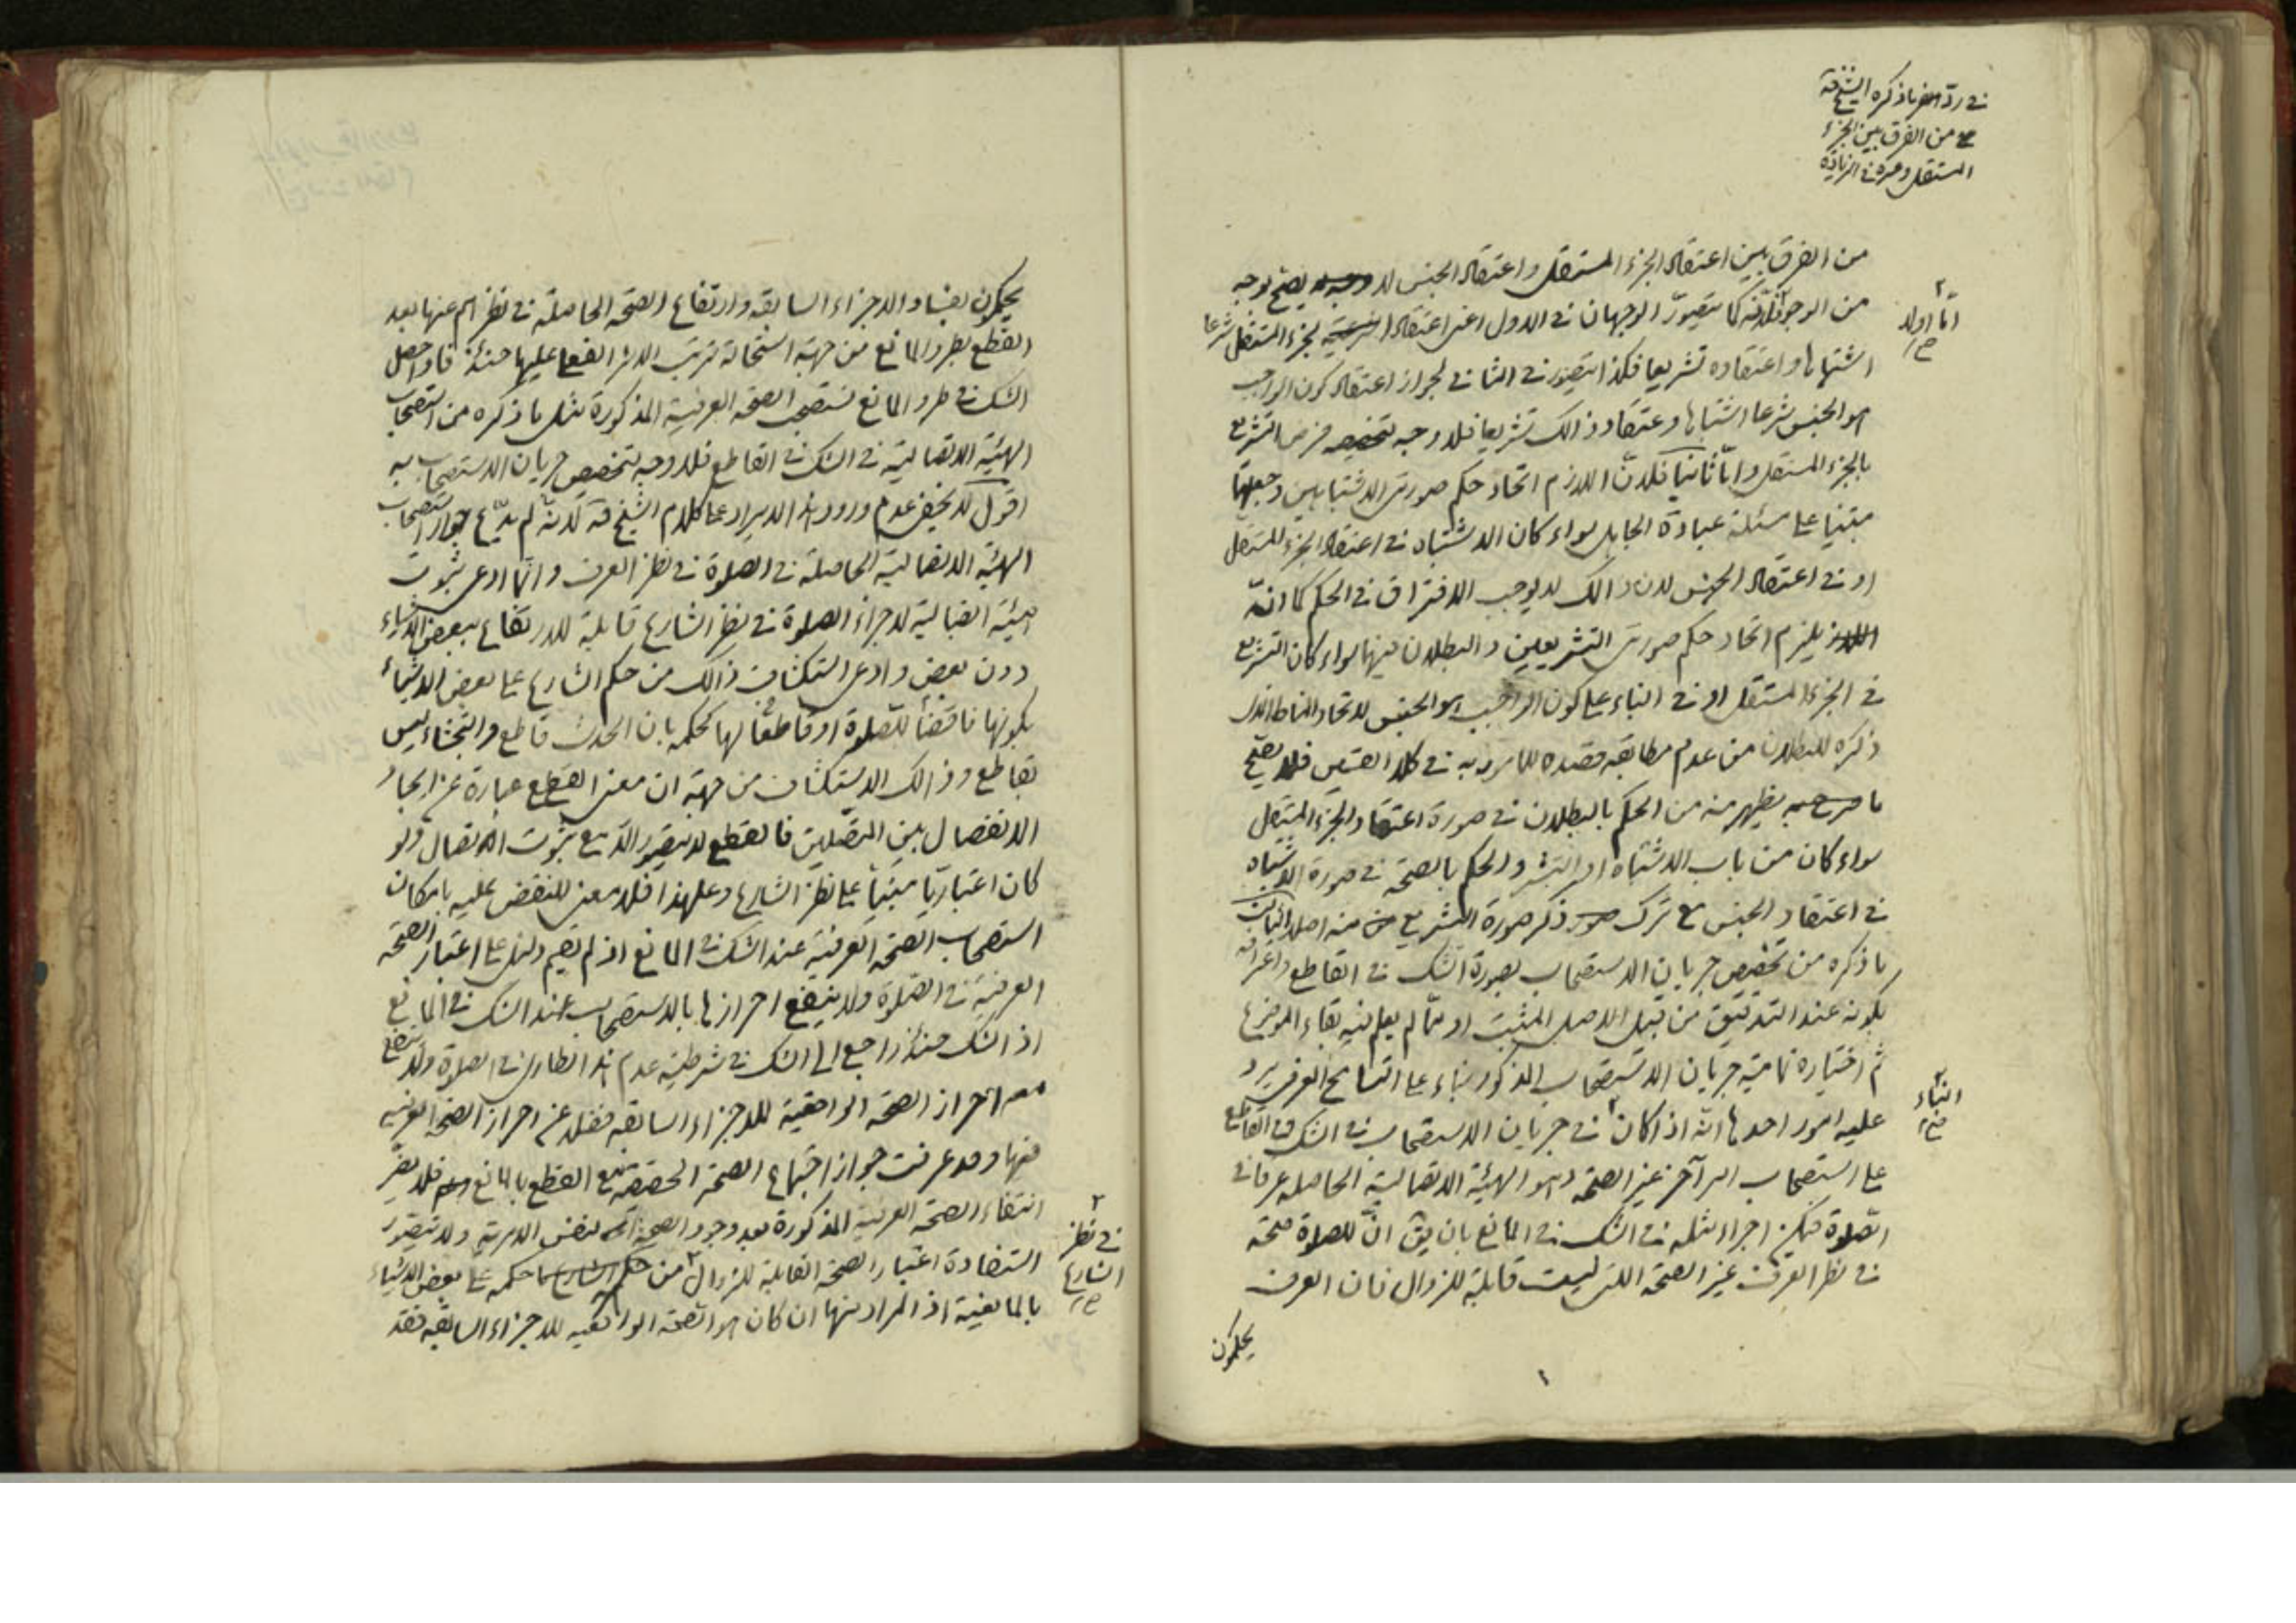 في ردّ ما ذكره الشيخ قه
من الفرق بين الجزء
المستقل وغيره في الزيادة
من الفرق بين اعتقاد الجزء المستقل واعتقاد الجنس لا يصح بوجه
امّا اولا
صح
من الوجوه فلانّه كما يتصوّر الوجهان في الاول اعنى اعتقاد الجزء المستقل شرعا
اشتباها واعتقاده تشريعا فكذا يتصور في الثاني لجواز اعتقاد كون الواجب
هو الجنس شرعا اشتباها وعتقاد ذالك تشريعا فلا وجه لتخصيص فرض التشريع
بالجزء المستقل وامّا ثانيا فلانّ اللازم اتحاد حكم صورتى الاشتباهين وجعلهما
مبتنيا على مسئلة عبادة الجاهل سواء كان الاشتباه في اعتقاد الجزء المستقل
او في اعتقاد الجنس لان ذالك لا يوجب الافتراق في الحكم كما انّه
يلزم اتحاد حكم صورتى التشريعين والبطلان فيهما سواء كان التشريع
في الجزء المستقل او في البناء على كون الواجب هو الجنس لاتحاد المناط الذى
ذكره للبطلان من عدم مطابقة قصده للمامور به في كلا القسمين فلا يصح
ما يظهر منه من الحكم بالبطلان في صورة اعتقاد الجزء المستقل
سواء كان من باب الاشتباه او التشريع والحكم بالصحّة في صورة الاشتباه
في اعتقاد الجنس مع ترك ذكر صورة التشريع منه اصلا
ما ذكره من تخصيص جريان الاستصحاب بصورة الشك في القاطع واعترافه
بكونه عند التدقيق من قبيل الاصل المثبت او ممّا لم يعلم فيه بقاء الموضوع
ثم اختياره تمامية جريان الاستصحاب المذكور بناء على التسامح العرفى يرد
البناء
صح
عليه امور احدها انّه اذا كان في جريان الاستصحاب في الشك في القاطع
على استصحاب امر آخر غير الصحّة وهو الهيئة الاتصالية الحاصلة عرفا في
الصلوة فيمكن اجراء مثله في الشك في المانع بان يق انّ للصلوة صحّة
في نظر العرف غير الصحّة التى ليست قابلية للزوال فان العرف
يحكمون
يحكمون بفساد الاجزاء السابقة وارتفاع الصحّة الحاصلة في نظرهم عنها بعد
القطع بطرو المانع من جهة استحالة ترتب الاثر الفعلى عليها حينئذ فاذا حصل
الشك في طرو المانع نستصحب الصحّة العرفية المذكورة مثل ما ذكره من استصحاب
الهيئة الاتصالية في الشك في القاطع فلا وجه لتخصيص جريان الاستصحاب به
اقول لا يخفى عدم ورود هذا الايراد على كلام الشيخ قه لانّه لم يدّع جواز استصحاب
الهيئة الاتصالية الحاصلة في الصلوة في نظر العرف وانّما ادعى ثبوت
هيئة اتصالية لاجزاء الصلوة في نظر الشارع قابلية للارتفاع ببعض الاشياء
دون بعض وادعى استكشاف ذالك من حكم الشارع على بعض الاشياء
بكونها ناقضا للصلوة او قاطعا لها كحكمه بان الحدث قاطع والتجشاء ليس
بقاطع وذالك الاستكشاف من جهة ان معنى القطع عبارة عن ايجاد
الانفصال بين المتصلين فالقطع لا يتصور الّا مع ثبوت الاتصال ولو
كان اعتباريّا مبنيّا على نظر الشارع وعلى هذا فلا معنى للنقض عليه بامكان
استصحاب الصحّة العرفية عند الشك في المانع اذ لم يقم دليل على اعتبار الصحّة
العرفية في الصلوة ولا ينفع احرازها بالاستصحاب عند الشك في المانع
اذ الشك حينئذ راجع الى الشك في شرطية عدم هذا الطارى في الصلوة ولا ينفع
معه احراز الصحّة الواقعية للاجزاء السابقة فضلا عن احراز الصحّة العرفية
فيها وقد عرفت جواز اجتماع الصحّة الحقيقية مع القطع بالمانع فلا يضر
انتفاء الصحّة العرفية المذكورة بعد وجود الصحّة في نفس الامرية ولا يتصور
في نظر
الشارع
صح
استفادة اعتبار الصحّة القابلة للزوال من حكمه على بعض الاشياء
بالمانعية اذ المراد منها ان كان هو الصحّة الواقعية للاجزاء السابقة فقد